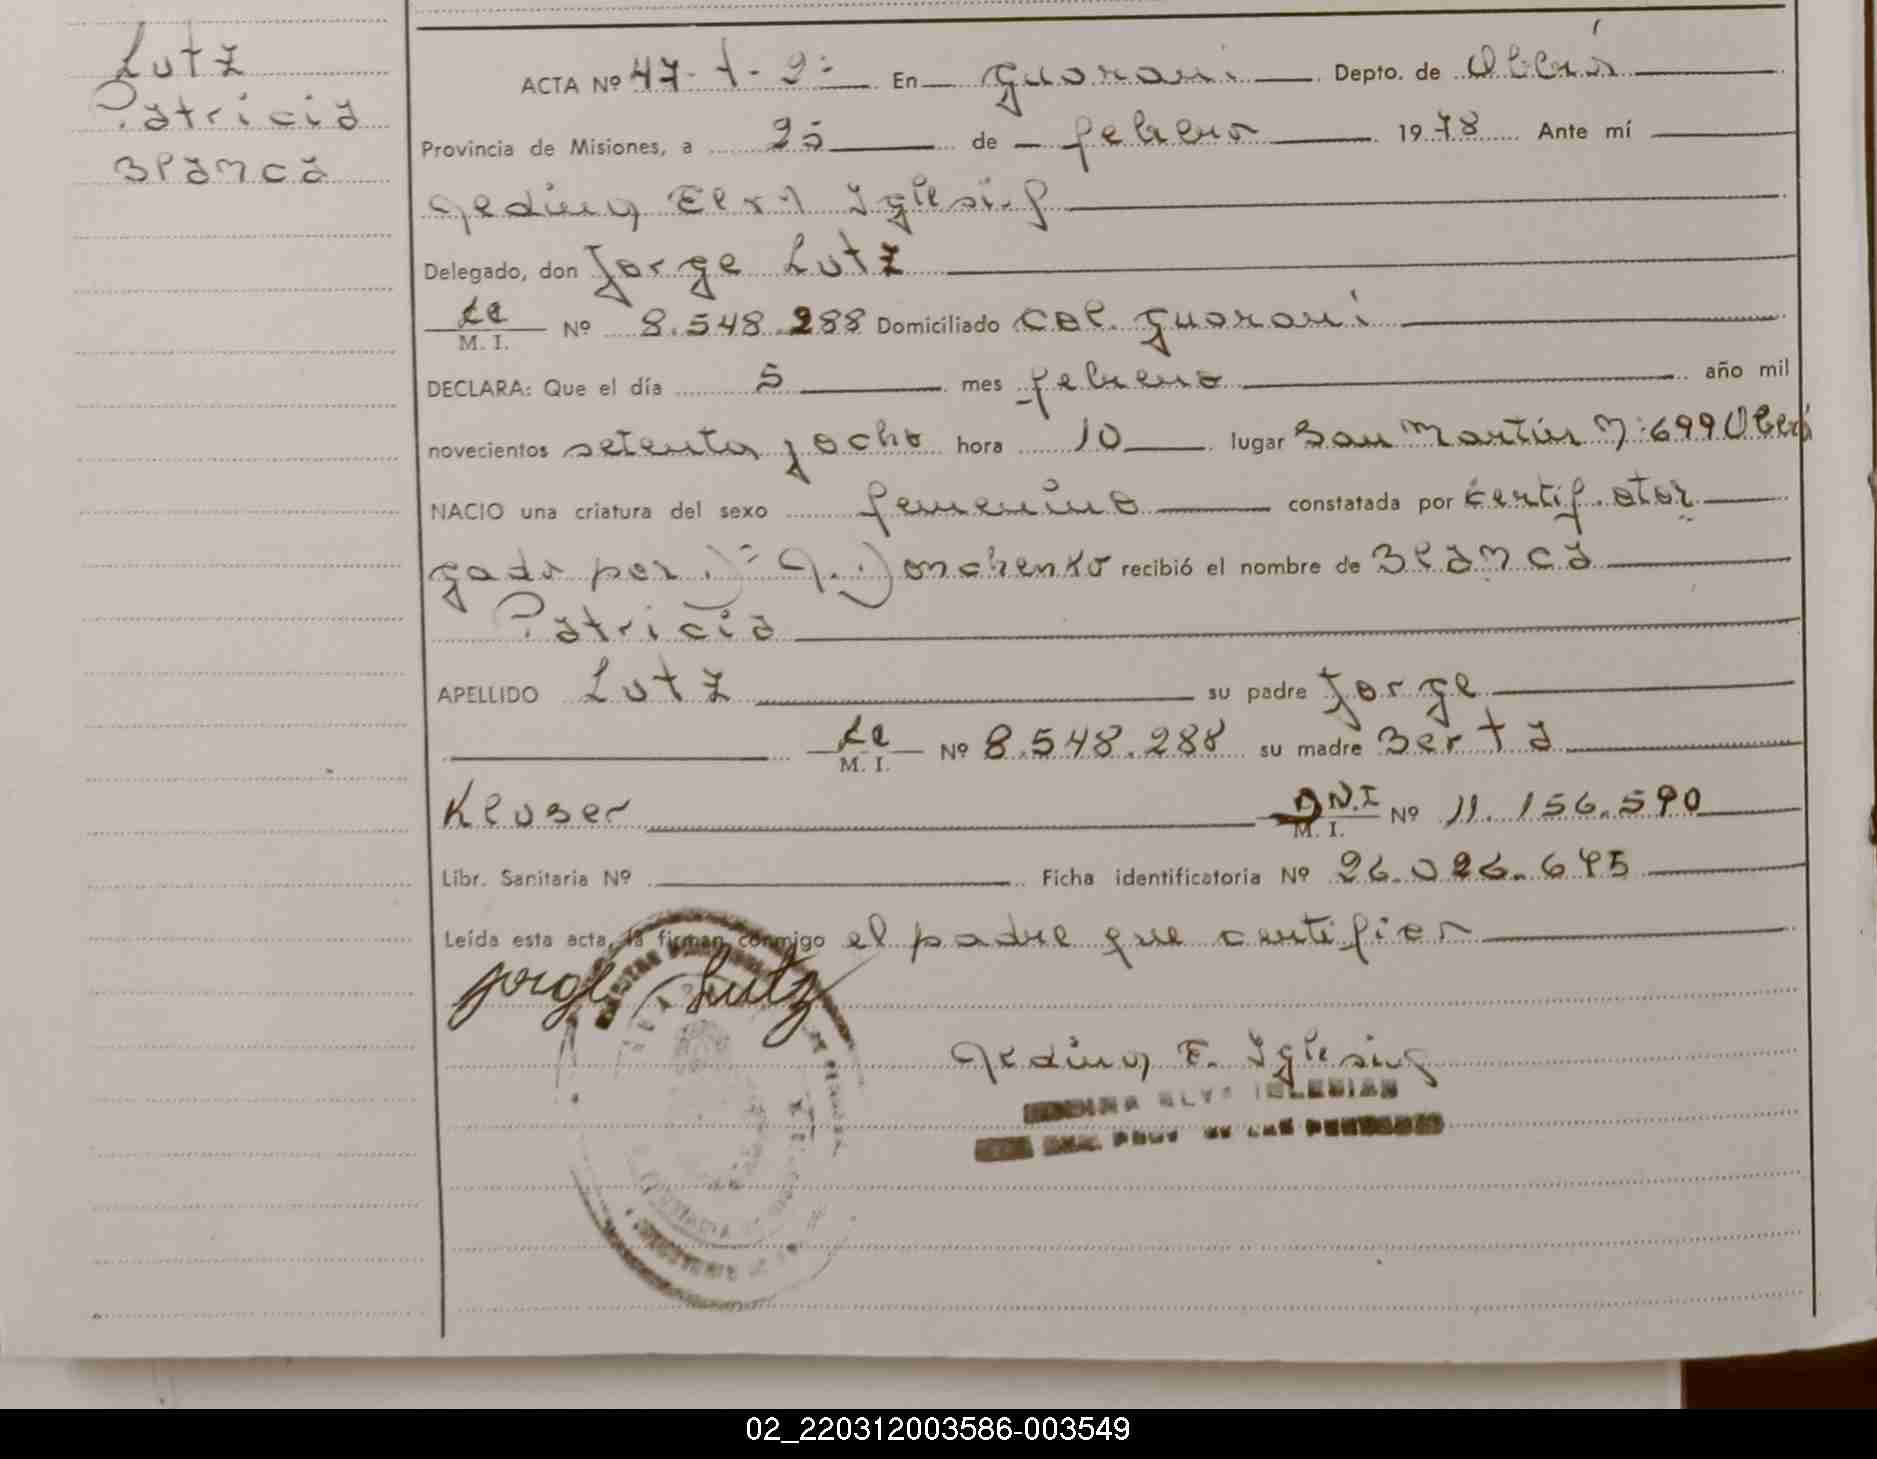 Lutz
Patricia
Blanca
ACTA Nº 47-1-2º En Guarani Depto. de Oberá
Provincia de Misiones, a 25 de febrero 1978 Ante mí
Elva Iglesias
Delegado, don Jorge Lutz
LE M. I. Nº 8.548.288 Domiciliado Col. Guarani
DECLARA: Que el día 5 mes febrero año mil
novecientos setenta y ocho hora 10 lugar San Martin Nº 699 Oberá
NACIO una criatura del sexo femenino constatada por certif. otor
gado por recibió el nombre de Blanca
Patricia
APELLIDO Lutz su padre Jorge
LE M. I. Nº 8.548.288 su madre Berta
Kluser D.N.I M. I. Nº 11.156.590
Libr. Sanitaria Nº Ficha identificatoria Nº 26.026.645
Leída esta acta, la firman conmigo el padre que certifico
Jorge Lutz
E. Iglesias
ELVA IGLESIAS
DE LAS PERSONAS
02_220312003586-003549